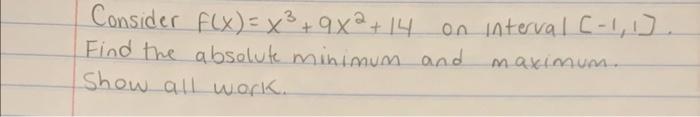 Consider f(x) = x³ + 9x² + 14 on interval [-1,1].
Find the absolute minimum and maximum.
Show all work.